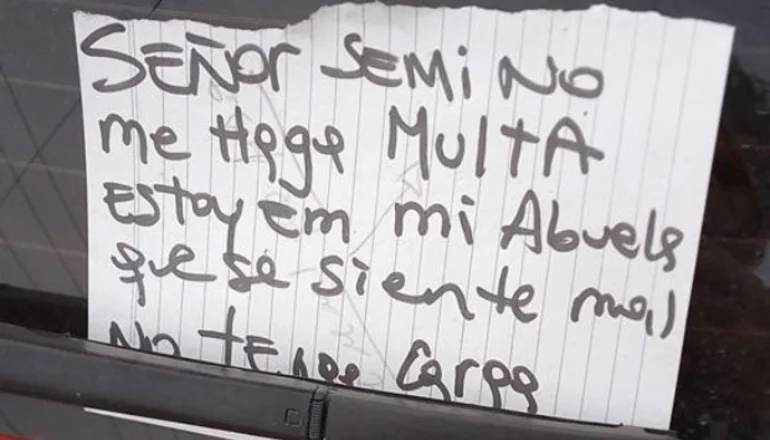 SEÑOr SEMi NO
me HAgA MUltA
EStoy Em mi Abuela
que se siente mal
NO tEngo Carga